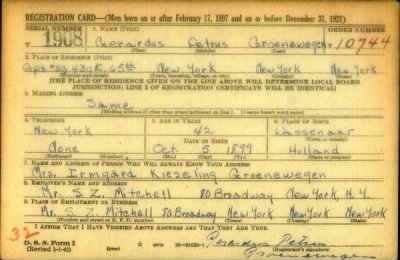 REGISTRATION CARD—(Men born on or after February 17, 1897 and on or before December 31, 1921)
SERIAL NUMBER 1. NAME (Print) ORDER NUMBER
1908 Gerardus Petrus Groenewegen 10,744
(First) (Middle) (Last)
2. PLACE OF RESIDENCE (Print)
65th New York New York New York
(Number and street) (Town, township, village, or city) (County) (State)
[THE PLACE OF RESIDENCE GIVEN ON THE LINE ABOVE WILL DETERMINE LOCAL BOARD
JURISDICTION; LINE 2 OF REGISTRATION CERTIFICATE WILL BE IDENTICAL]
3. MAILING ADDRESS
Same
[Mailing address if other than place indicated on line 2. If same insert word same]
4. TELEPHONE 5. AGE IN YEARS 6. PLACE OF BIRTH
New York 42 Wassenaar
DATE OF BIRTH
None Oct 5 1899 Holland
7. NAME AND ADDRESS OF PERSON WHO WILL ALWAYS KNOW YOUR ADDRESS
Mrs. Irmgard Kieseling Groenewegen
8. EMPLOYER'S NAME AND ADDRESS
Mr. S. Z. Mitchell 80 Broadway New York, N. Y.
9. PLACE OF EMPLOYMENT OR BUSINESS
Mr. S. Z. Mitchell 80 Broadway New York New York New York
(Number and street or R. F. D. number) (Town) (County) (State)
I AFFIRM THAT I HAVE VERIFIED ABOVE ANSWERS AND THAT THEY ARE TRUE.
32
D. S. S. Form 1
(Revised 1-1-42) (over)
Gerardus Petrus
Groenewegen
(Registrant's signature)